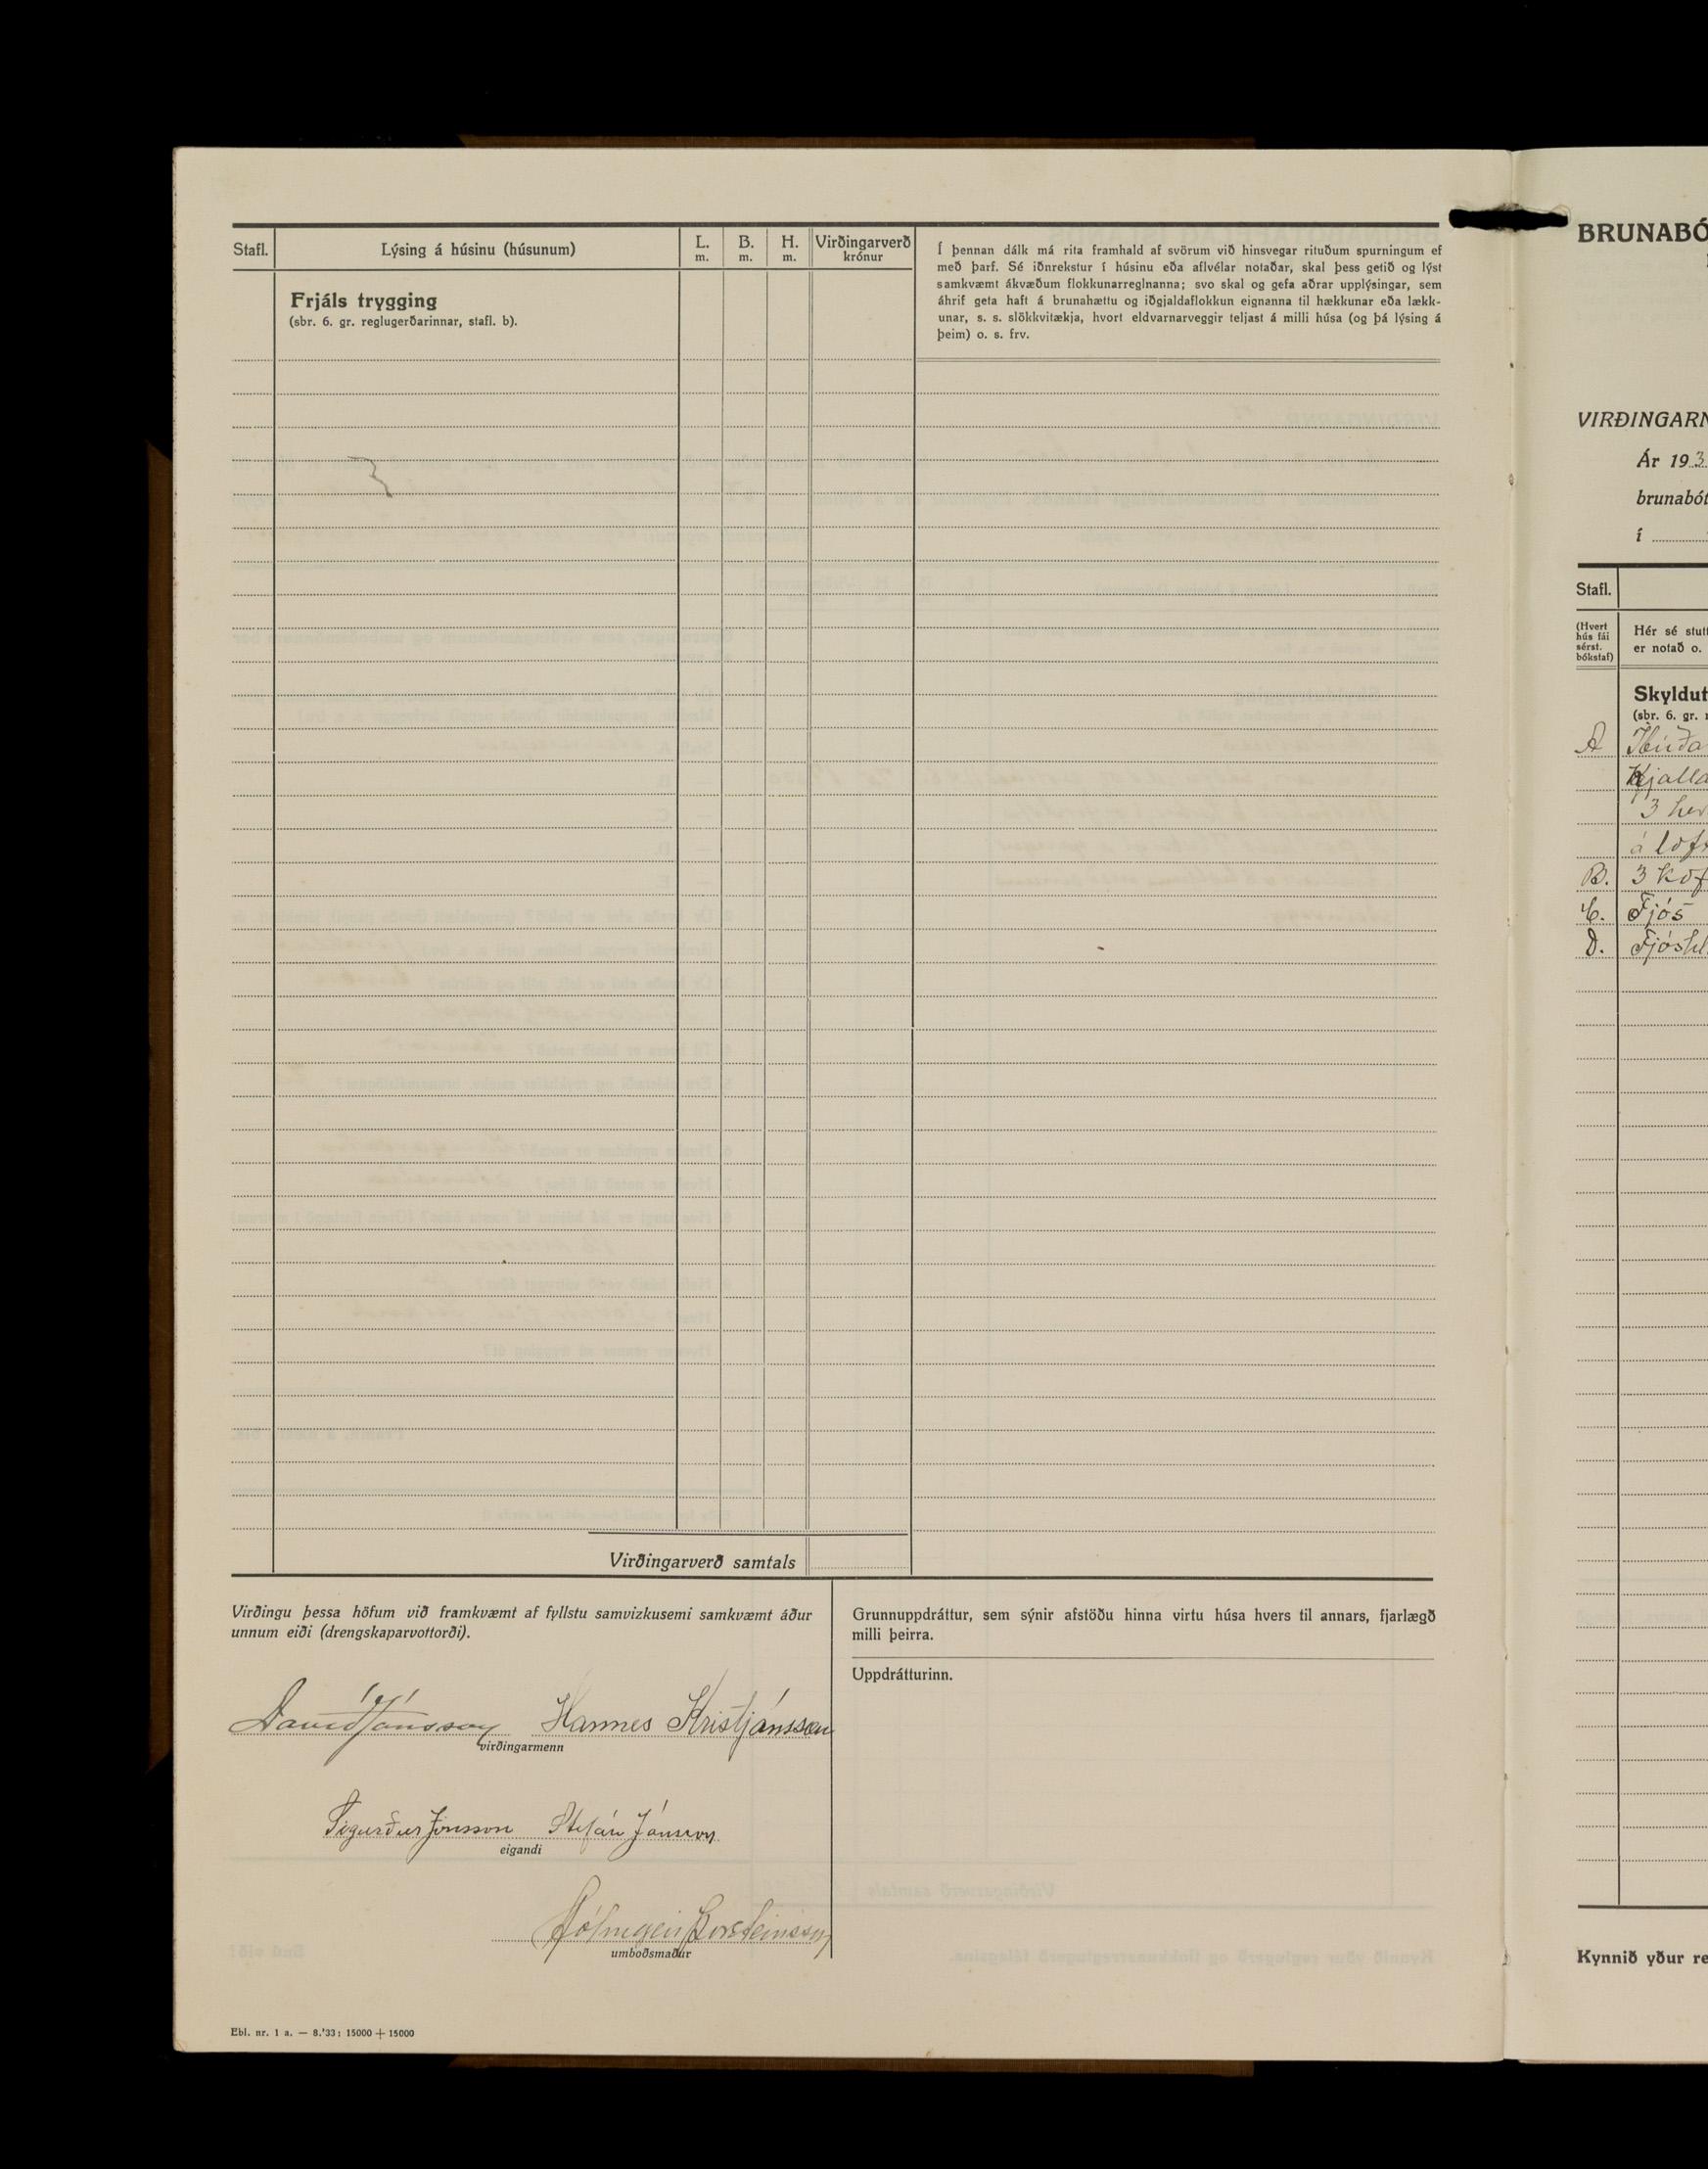 Stafl. Lýsing á húsinu (húsunum) L. m. B. m. H. m. Virðingarverð krónur
Í þennan dálk má rita framhald af svörum við hinsvegar rituðum spurningum ef
með þarf. Sé iðnrekstur í húsinu eða aflvélar notaðar, skal þess getið og lýst
samkvæmt ákvæðum flokkunarreglnanna; svo skal og gefa aðrar upplýsingar, sem
áhrif geta haft á brunahættu og iðgjaldaflokkun eignanna til hækkunar eða lækk-
unar, s. s. slökkvitækja, hvort eldvarnarveggir teljast á milli húsa (og þá lýsing á
þeim) o. s. frv.
Frjáls trygging
(sbr. 6. gr. reglugerðarinnar, stafl. b).
Virðingarverð samtals
Virðingu þessa höfum við framkvæmt af fyllstu samvizkusemi samkvæmt áður
unnum eiði (drengskaparvottorði).
Davíð Jónsson Hannes Kristjánsson
virðingarmenn
Sigurður Jónsson Stefán Jónsson
eigandi
Hólmgeir Þorsteinsson
umboðsmaður
Grunnuppdráttur, sem sýnir afstöðu hinna virtu húsa hvers til annars, fjarlægð
milli þeirra.
Uppdrátturinn.
Ebl. nr. 1 a. — 8.'33: 15000 + 15000
BRUNABÓ
VIRÐINGARN
Ár 193
brunabót
í
Stafl.
(Hvert
hús fái
sérst.
bókstaf)
Hér sé stutt
er notað o.
Skyldut
(sbr. 6. gr. r
A Íbúða
Kjalla
3 her
á loft
B. 3 kof
C. Fjós
D. Fjóshl
Kynnið yður re